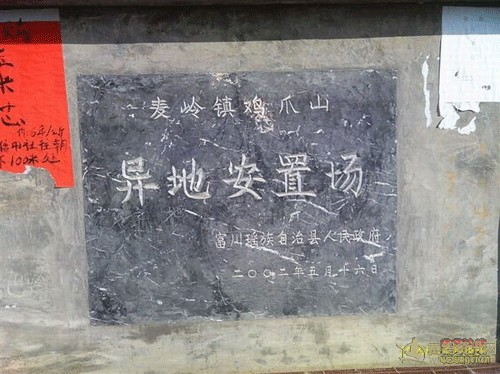 麦岭镇鸡爪山
异地安置场
富川瑶族自治县人民政府
二〇〇二年五月十六日
不100米处